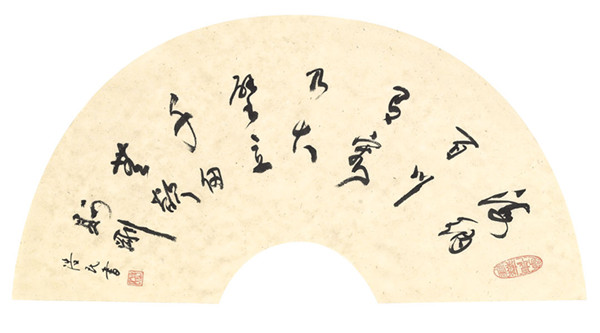 海納
百川
有容
乃大
壁立
千仞
無欲
則剛
書